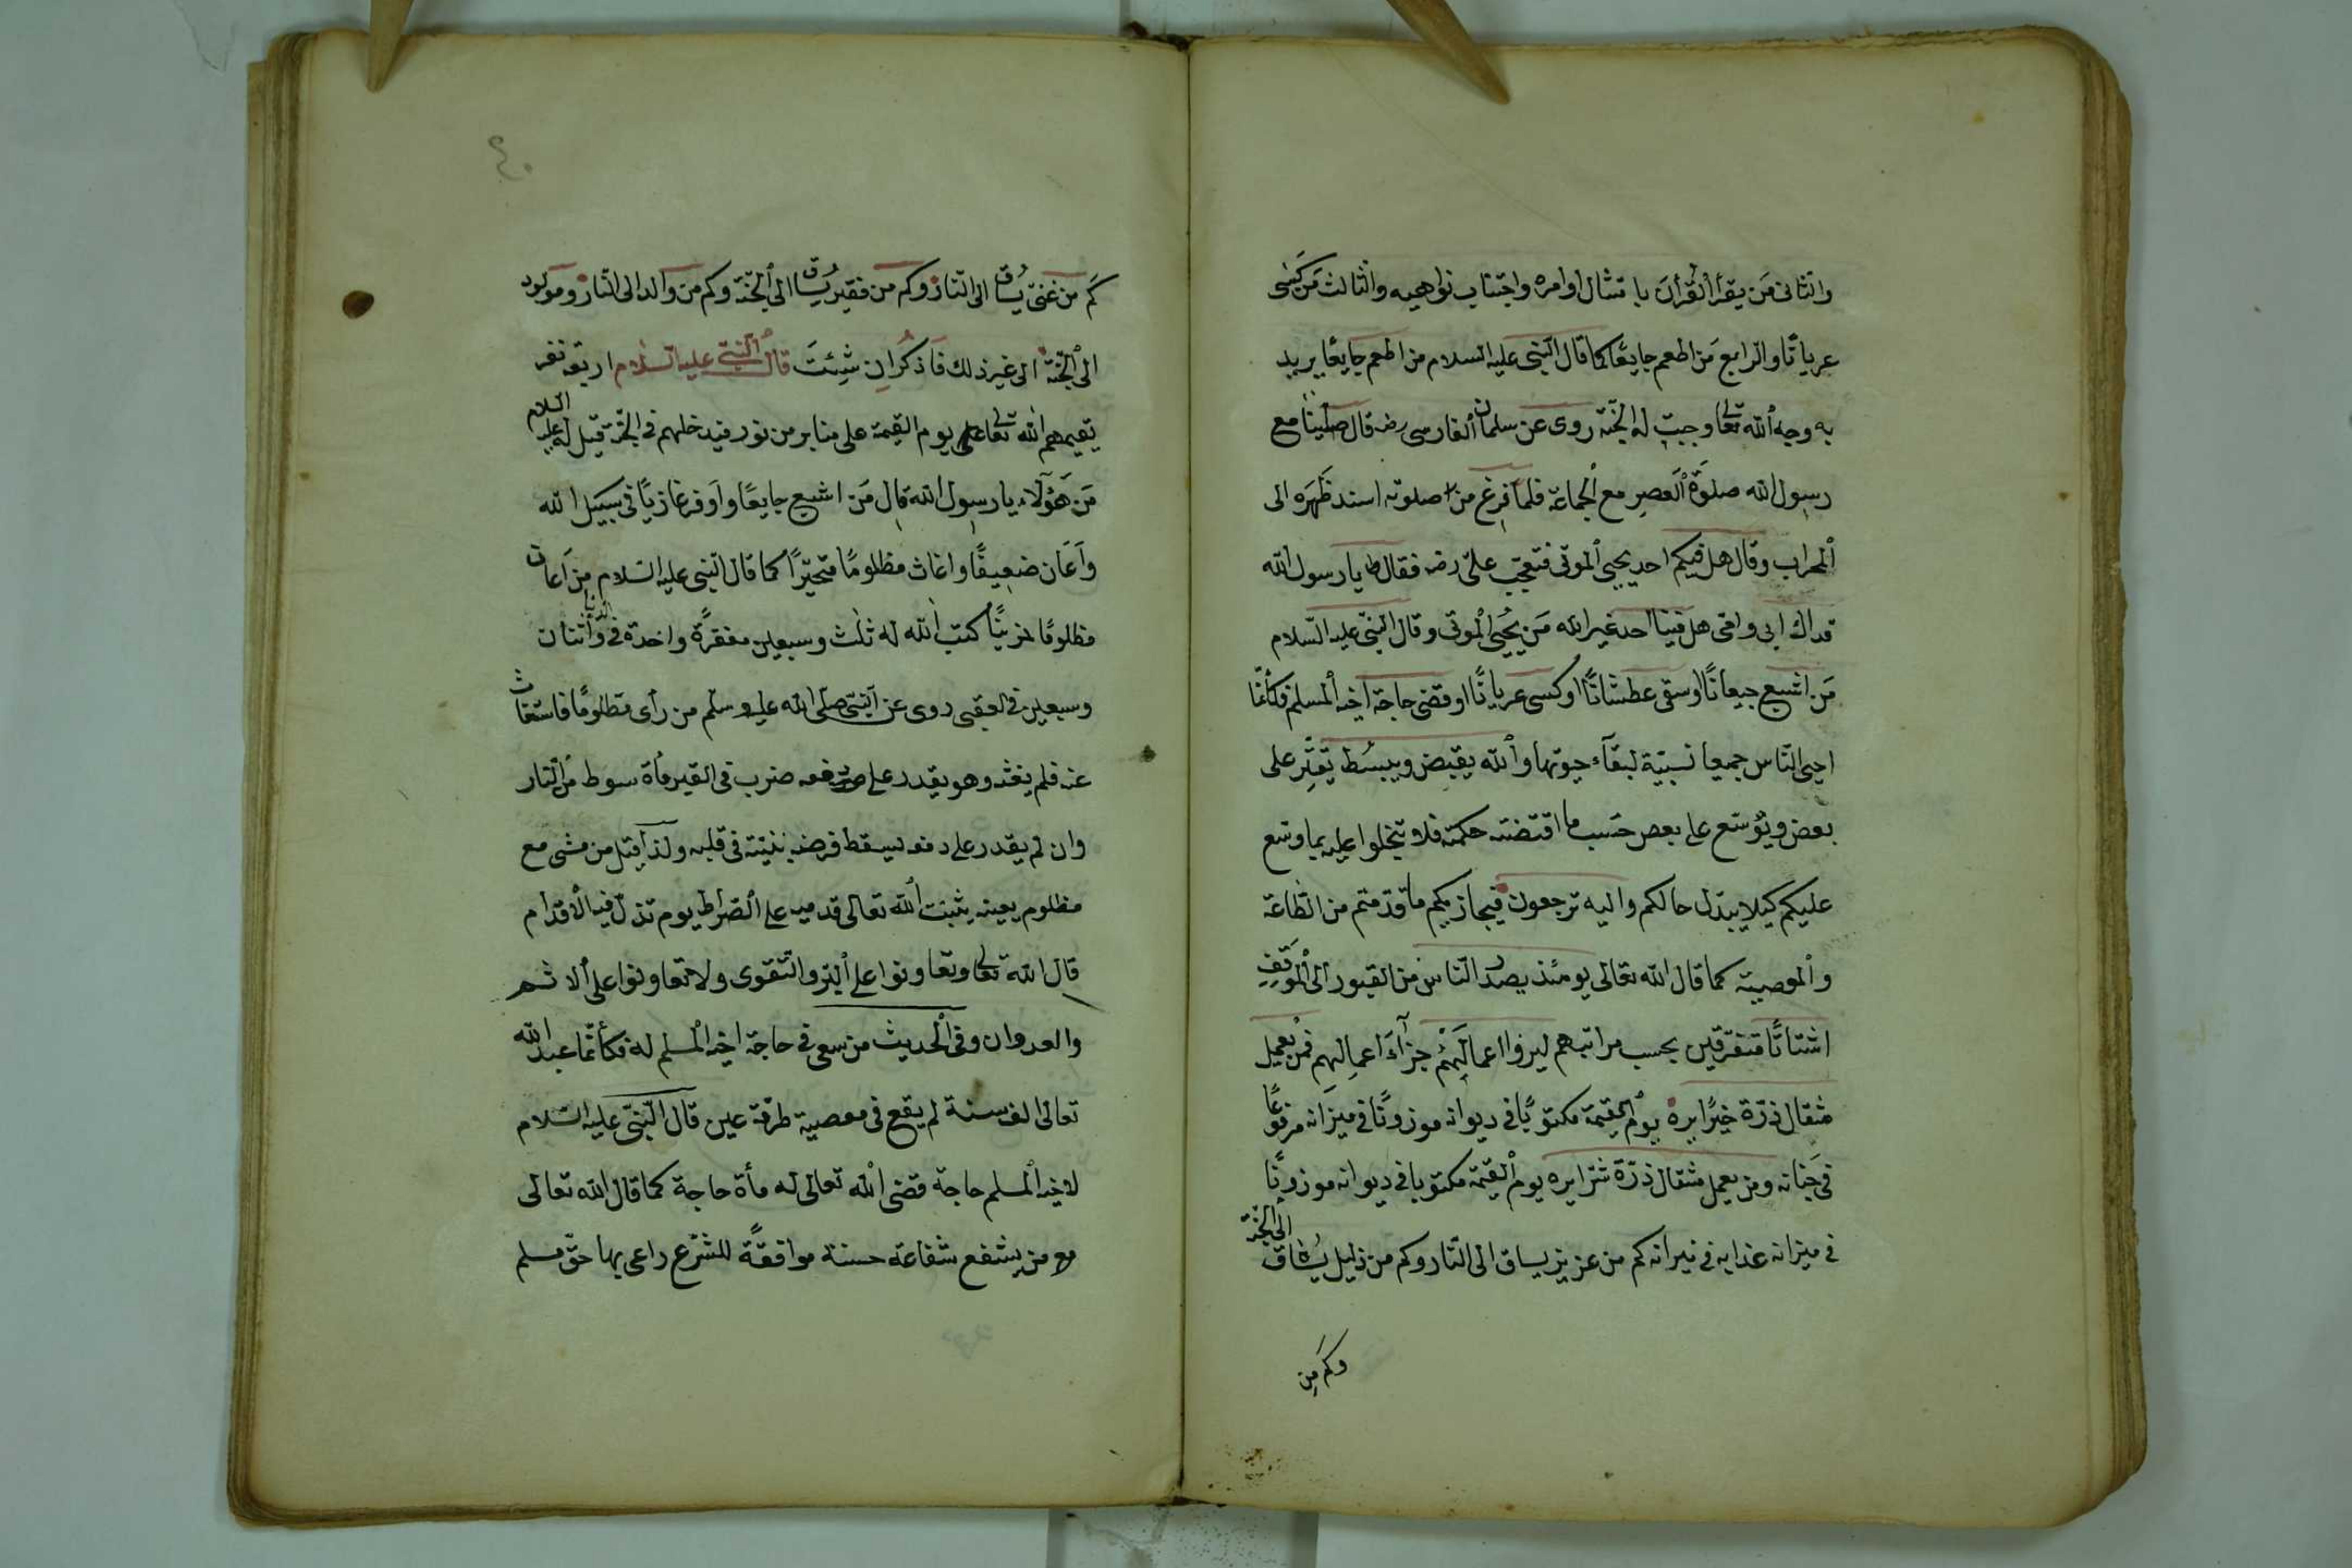 والثانى مَن يقرأ القرأن بامتثال اوامره واجتناب نواهيه والثالث مَن كَسٰى
عرياناً والرابع مَن اطعم جايعًا كما قال النّبى عليه السلام من اطعم جايعًا يريد
به وجه ٱلله تعالى وجبت له الجنّة روى عن سلمان الفارسى رضه قال صلّينا مع
رسول الله صلوة ٱلعصر مع ٱلجماعة فلما فرغ من صلوته اسند ظَهرَه الى
ٱلمحراب وقال هل فيكم احد يحيى ٱلموتى فتعجّب علىّ رضه فقال يا رسول الله
فداك ابى وامّى هل فينا احد غير الله مَن يُحيى ٱلموتى وقال النبىّ عليه السّلام
مَن اشبع جيعانًا اوسقى عطشانًا اوكسى عريانًا اوقضى حاجة اخيه ٱلمسلم فكأنّما
احيى النّاس جميعا نسبيّة لبقآء حيوتها وٱلله يقبض ويبسُط يقتِّر على
بعض ويُوسّع على بعض حسَب ما اقتضته حكمته فلا تبخلوا عليه بما وسّع
عليكم كيلا يبدّل حالكم واليه ترجعون فيجازيكم ما قدّمتم من الطّاعة
وٱلمعصية كما قال الله تعالى يومئذ يصدر النّاس من القبور الى ٱلمَوقِفِ
اشتاتًا متفرّقين بحسب مراتبهم ليروا اعمالَهُمْ جزآءَ اعمالهم فمن يعمل
مثقال ذرّة خيرًا يره يوم ٱلقيمة مكتوبًا فى ديوانه موزونًا فى ميزانه مرفوعًا
فى جَنانه ومن يعمل مثقال ذرّة شرّا يره يوم ٱلقيمة مكتوبا فى ديوانه موزونًا
فى ميزانه عذابه فى نيرانه كم من عزيز يساق الى النّار وكم من ذليل يُساق الى الجنّة
وكَم مِن
٤٠
كَم من غنىّ يُساق الى النّار وكم من فقير يُساق الى ٱلجنّة وكم من والد الى النّار ومولود
الى ٱلجنّة الى غير ذلك فَاذكُران شِئتَ قال ٱلنبىّ عليه السّلام اربعة نفر
يقيمهم ٱلله تعالى يوم القيمة على منابر من نور فيدخلهم فى الجنّة قيل له عليه السلام
مَن هَؤُلآء يا رسول الله قال مَن اشبع جايعًا واَوفر غازيًا فى سبيل الله
واَعَان ضعيفًا واغاث مظلومًا متحيّرًا كما قال النّبى عليه السّلام من اَعان
مظلومًا حزينًا كتب ٱلله له ثلٰث وسبعين مغفرةً واحدة فى الدّنيا وأثنتان
وسبعين فى لعقبى روى عن ٱلنبّى صلّى الله عليه وسلّم من رأى مظلومًا فاستغاث
عنه فلم يغثه وهو يقدر على دفعه ضرب فى القبر مأة سوط من النّار
وان لم يقدر على دفعه ليسقط فرضه بنيّته فى قلبه ولذا قيل من مشى مع
مظلوم يعينه يثبت ٱلله تعالى قدميه على ٱلصّراط يوم تذلّ فيه الْاقدام
قال الله تعالى وتعاونوا على ٱلبرّ والتّقوى ولا تعاونوا على ألاثم
والعدوان وفى ٱلحديث من سعى فى حاجة اخيه ٱلمسلم له فكأنّما عبد الله
تعالى الف سنة لم يقع فى معصية طرفة عين قال النّبىّ عليه السّلام
لاخيه ٱلمسلم حاجة قضى ٱلله تعالى له مأة حاجة كما قال الله تعالى
من يشفع شفاعة حسنة موافقةً للشّرع راعى بها حقّ مسلم